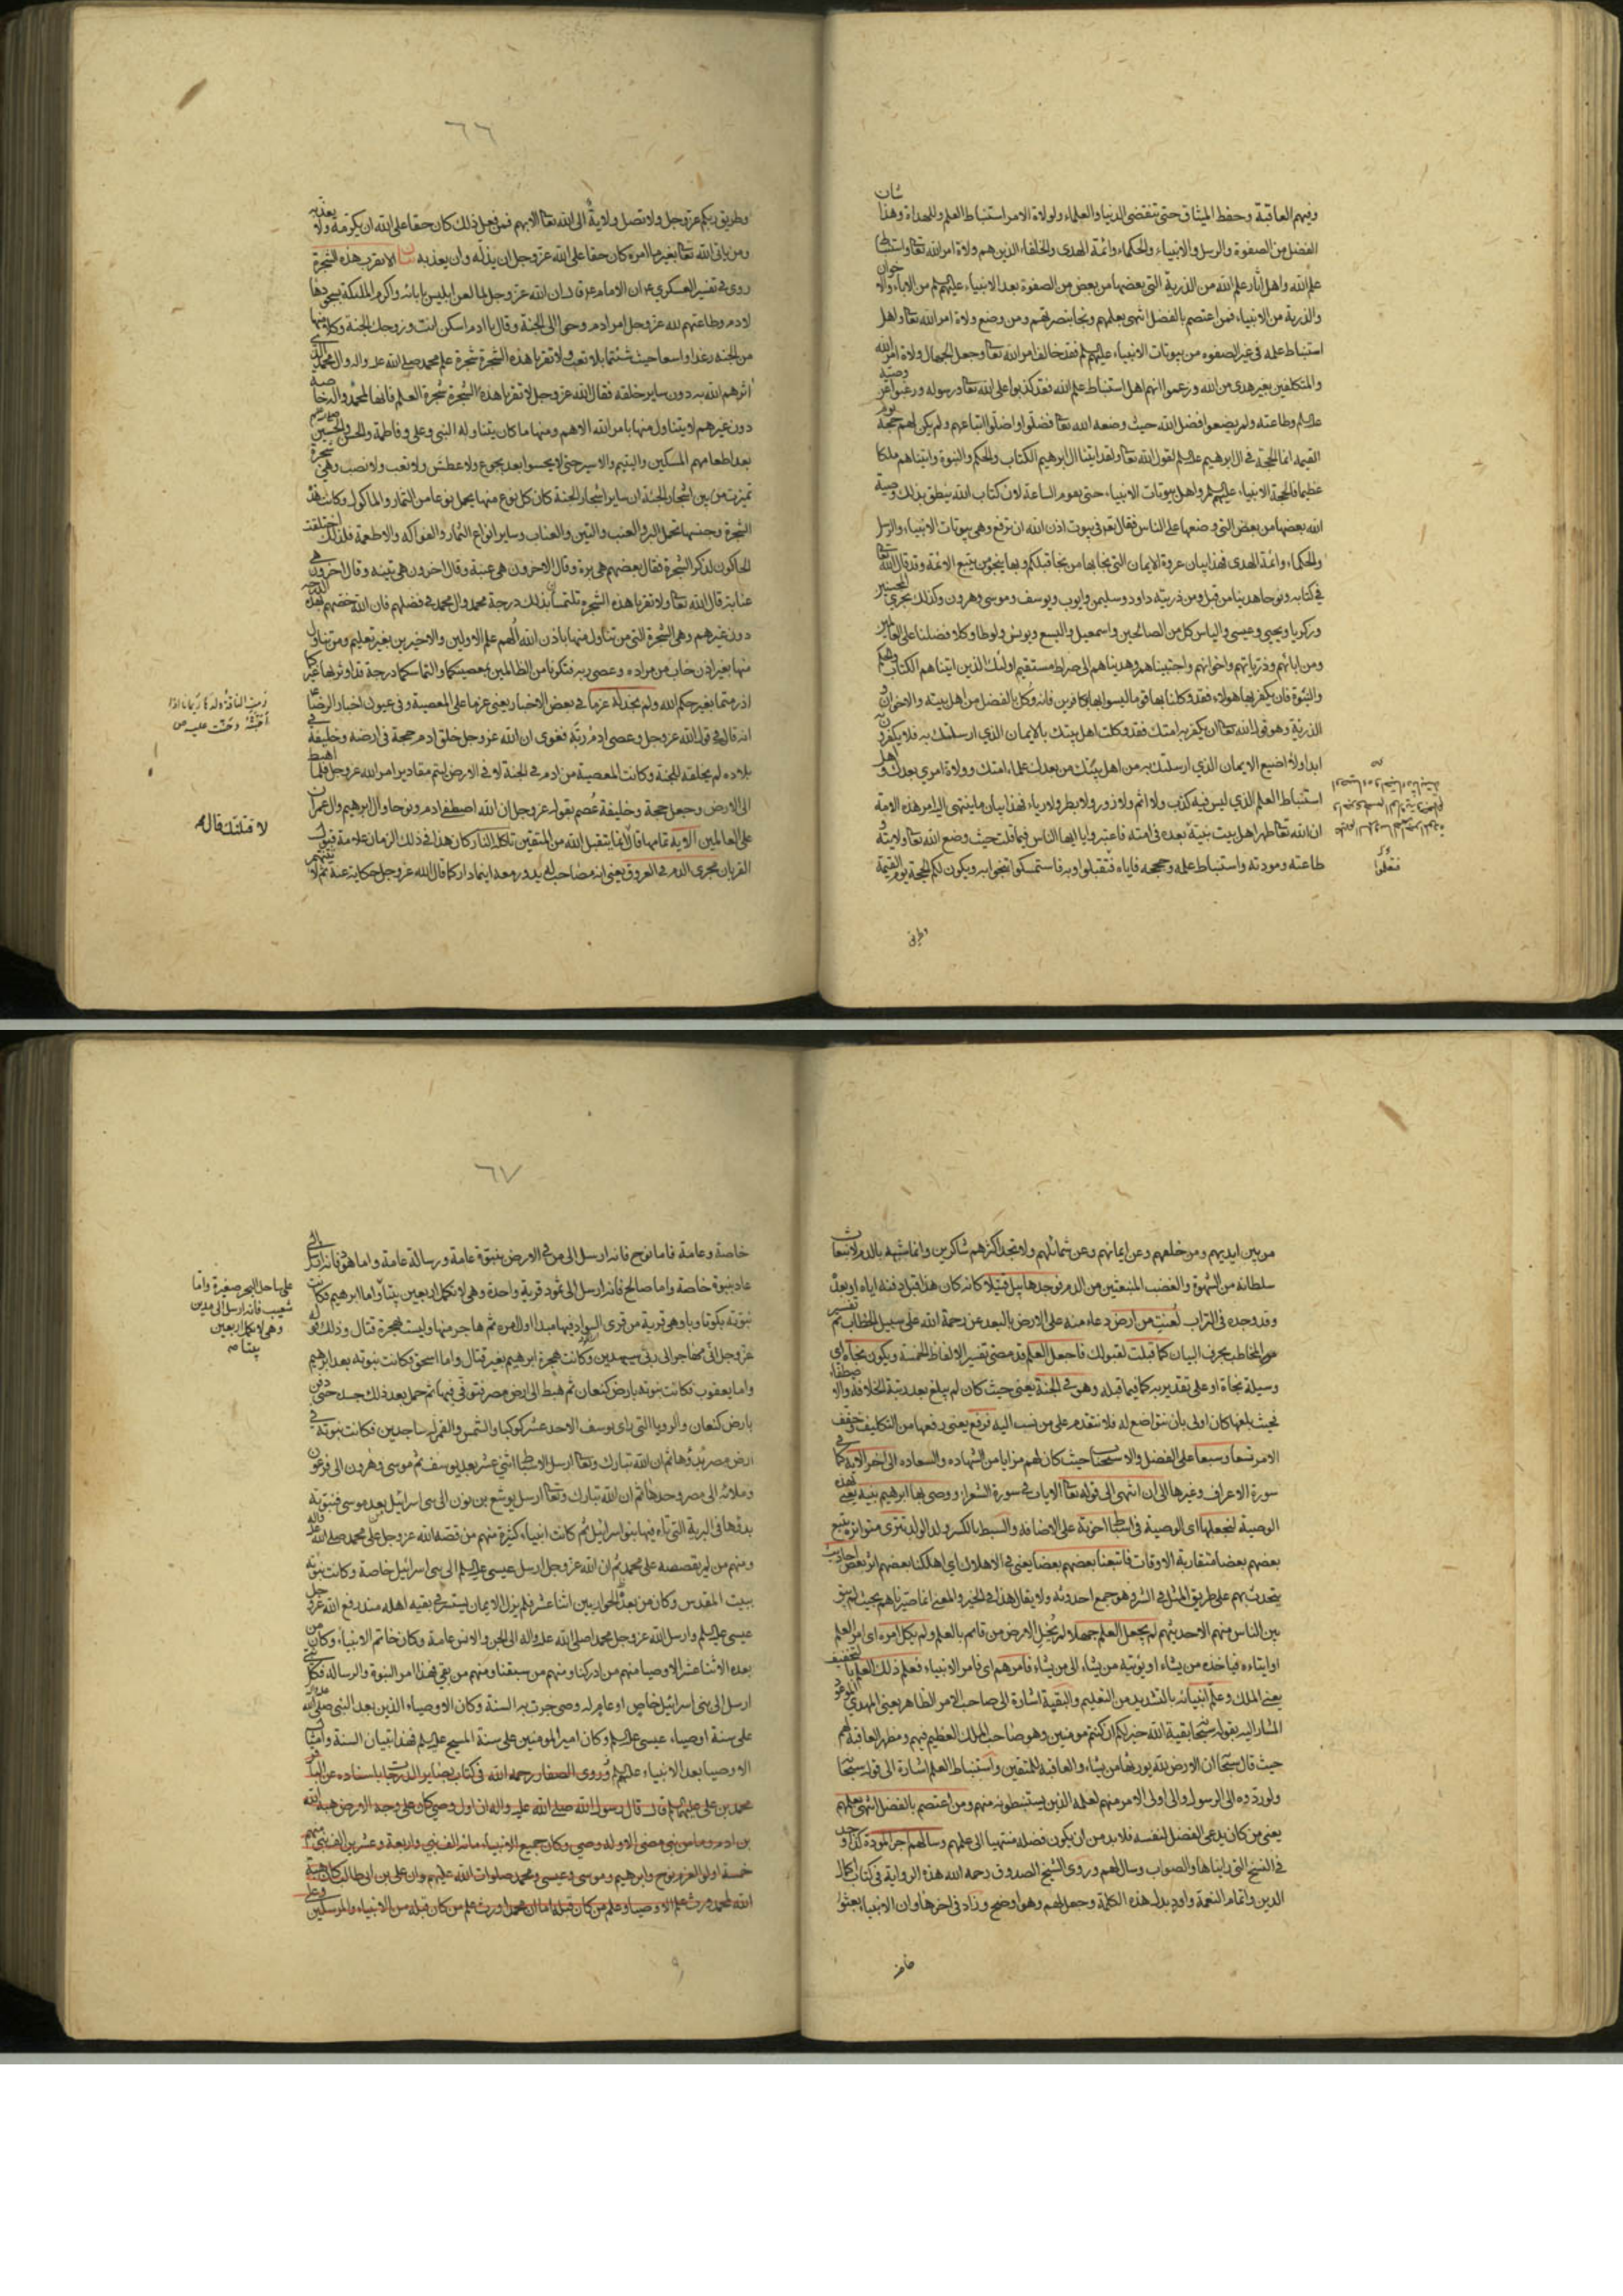 وفيهم العاقبة وحفظ الميثاق حتى تنقضى الدنيا والعلماء ولولاة الامر استنباط العلم وللهداة وهذا شان
الفضل من الصفوة والرسل والانبياء والحكماء وائمة الهدى والخلفاء الذين هم ولاة امر الله تعا واستنباط
علم الله واهل آثار علم الله من الذرية التى بعضها من بعض من الصفوة بعد الانبياء عليهم من الاباء والاخوان
والذرية من الانبياء فمن اعتصم بالفضل انتهى بعلمهم ونجا بنصرتهم ومن وضع ولاة امر الله تعا واهل
استنباط علمه فى غير الصفوه من بيوتات الانبياء عليهم فقد خالف امر الله تعا وجعل الجهال ولاة امر الله
والمتكلفين بغير هدى من الله وزعموا انهم اهل استنباط علم الله فقد كذبوا على الله تعا ورسوله ورغبوا عن وصيه
وطاعته ولم يضعوا فضل الله حيث وضعه الله تعا فضلوا واضلوا اتباعهم ولم يكن لهم حجة يوم
القيمة انما الحجة فى ال ابرهيم لقول الله تعا ولقد اتينا ال ابرهيم الكتاب والحكم والنبوة واتيناهم ملكا
عظيما فالحجة الانبياء عليهم واهل بيوتات الانبياء حتى يقوم الساعة لان كتاب الله ينطق بذلك وصية
الله بعضها من بعض التى وضعها على الناس فقال فى بيوت اذن الله ان ترفع وهى بيوتات الانبياء والرسل
والحكماء وائمة الهدى فهذا بيان عروة الايمان التى نجا بها من نجا قبلكم وبها ينجو من يتبع الائمة وقد قال الله تعا
فى كتابه ونوحا هدينا من قبل ومن ذريته داود وسليمن وايوب ويوسف وموسى وهرون وكذلك نجزى المحسنين
وزكريا ويحيى وعيسى والياس كل من الصالحين واسمعيل واليسع ويونس ولوطا وكلا فضلنا على العالمين
ومن ابائهم وذرياتهم واخوانهم واجتبيناهم وهديناهم الى صراط مستقيم اولئك الذين اتيناهم الكتاب والحكم
والنبوة فان يكفر بها هولاء فقد وكلنا بها قوما ليسوا بها بكافرين فانه وكل بالفضل من اهل بيته والاخوان و
الذرية وهو قول الله تعا ان يكفر به امتك فقد وكلت اهل بيتك بالايمان الذي ارسلتك به فلا يكفرون به
ابدا ولا اضيع الايمان الذي ارسلتك به من اهل بيتك من بعدك علماء امتك وولاة امري بعدك واهل
استنباط العلم الذي ليس فيه كذب ولا اثم ولا زور ولا بطر ولا رياء فهذا بيان ما ينتهى اليه امر هذه الامة
ان الله تعا طهر اهل بيت نبيه بعده فى امته فاعتبروا يا ايها الناس فيما قلت حيث وضع الله تعا ولايته و
طاعته ومودته واستنباط علمه وحججه فاياه فتقبلوا وبه فاستمسكوا تنجوا به ويكون لكم الحجة يوم القيمة
وطريق
٦٦
وطريق ربكم عز وجل ولا تصل ولاية الى الله تعا الا بهم فمن فعل ذلك كان حقا على الله ان يكرمه ولا يعذبه
ومن ياتى الله تعا بغير ما امره كان حقا على الله عز وجل ان يذله وان يعذبه بيان لا تقرب هذه الشجرة
روى فى تفسير العسكري ان الامام قال ان الله عز وجل لما لعن ابليس بابائه واكرم الملئكة بسجودها
لادم وطاعتهم لله عز وجل امر ادم وحوا الى الجنة وقال يا ادم اسكن انت وزوجك الجنة وكلا منها
من الجنة رغدا واسعا حيث شئتما بلا تعب ولا تقربا هذه الشجرة شجرة علم محمد صلى الله عليه واله وال محمد الذين
اثرهم الله به دون ساير خلقه فقال الله عز وجل لا تقربا هذه الشجرة شجرة العلم فانها لمحمد واله خاصة
دون غيرهم لا يتناول منها بامر الله الا هم ومنها ما كان يتناوله النبى وعلى وفاطمة والحسن والحسين
بعد اطعامهم المسكين واليتيم والاسير حتى لا يحسوا بعد بجوع ولا عطش ولا تعب ولا نصب وهى شجرة
تميزت من بين اشجار الجنة ان ساير اشجار الجنة كان كل نوع منها يحمل نوعا من الثمار والماكول وكانت هذه
الشجرة وجنسها تحمل البر والعنب والتين والعناب وساير انواع الثمار والفواكه والاطعمة فلذلك اختلفت
الحاكون لذكر الشجرة فقال بعضهم هى برة وقال الاخرون هى عنبة وقال اخرون هى تينه وقال اخرون هى
عنابة قال الله تعا ولا تقربا هذه الشجره تلتمسان بذلك درجة محمد وال محمد فى فضلهم فان الله خصهم بهذه
دون غيرهم وهى الشجرة التى من تناول منها باذن الله الهم علم الاولين والاخرين بغير تعليم ومن تناول
منها بغير اذن خاب من مراده وعصى ربه فتكونا من الظالمين بمعصيتكما والتماسكما درجة قد اوثر بها غيركما
اذ رمتما بغير حكم الله ولم نجد له عزما فى بعض الاخبار يعنى عزما على المعصية وفى عيون اخبار الرضا
انه قال فى قول الله عز وجل وعصى ادم ربه فغوى ان الله عز وجل خلق ادم حجة فى ارضه وخليفة فى
بلاده لم يخلقه للجنة وكانت المعصية من ادم فى الجنة لا فى الارض لتتم مقادير امر الله عز وجل فلما اهبط
الى الارض وجعل حجة وخليفة عصم بقوله عز وجل ان الله اصطفى ادم ونوحا وال ابرهيم وال عمران
على العالمين الاية تمامها قال انما يتقبل الله من المتقين تاكله النار كان هذا فى ذلك الزمان علامة قبول
القربان مجرى الدم فى العروق يعنى انه مصاحب له يدور معه اينما دار كما قال الله عز وجل حكاية عنه ثم لاتينهم
لاقتلنك قاله
من بين ايديهم ومن خلفهم وعن ايمانهم وعن شمائلهم ولا تجد اكثرهم شاكرين وانما شبه بالدم لانبعاث
سلطانه من الشهوة والغضب المنبعثين من الدم فوجد هابيل قتيلا كانه كان هذا قبل دفنه اياه او بعد
وقد وجده فى التراب لعنت من ارض دعاء منه على الارض بالبعد عن رحمة الله على سبيل الخطاب ثم تفسير
المخاطب بحرف البيان كما قبلت لقبولك فاجعل العلم قد مضى تفسير الالفاظ الخمسة ويكون نجاة اى
وسيلة نجاة او على تقدير به كما فيما قبله وهو فى الجنة يعنى حيث كان لم يبلغ بعد رتبة الخلافة والاصطفاء
بحيث بلغها كان اولى بان نتواضع له فلا نتقدم على من نسب اليه فرفع يعنى رفعها من التكاليف وخفف
الامر تسعا وسبعا على الفضل والاستحباب حيث كان لهم مزايا من الشهاده والسعاده الى اخر الاية كما فى
سورة الاعراف وغيرها الى ان انتهى الى قوله تعا الايات فى سورة الشعراء ووصى بها ابرهيم بنيه يعنى بهذه
الوصية لنجعلها اى الوصية فى اسباط اخوته على الاضافة والسبط بالكسر ولد الولد تترى متواترة يتبع
بعضهم بعضا متقاربة الاوقات فاتبعنا بعضهم بعضا يعنى فى الاهلاك اى اهلكنا بعضهم اثر بعض احاديث
يتحدث بهم على طريق المثل فى الشر وهو جمع احدوثه ولا يقال هذا فى الخير والمعنى انا صيرناهم بحيث لم يبق
بين الناس منهم الا حديثهم لم يجعل العلم جهلا لم يخل الارض من قائم بالعلم ولم يكل امره اى امر العلم
او ايتاءه فياخذه من يشاء او يؤتيه من يشاء الى من يشاء فامرهم اى فامر الانبياء فعلم ذلك العلم بالتخفيف
يعنى الملك وعلم انبيائه بالتشديد من التعليم والبقية اشارة الى صاحب الامر الظاهر يعنى المهدى الموعود
المشار اليه بقوله سبحانه بقية الله خير لكم ان كنتم مومنين وهو صاحب الملك العظيم فيهم ومظهر العاقبة لهم
حيث قال سبحانه ان الارض لله يورثها من يشاء والعاقبة للمتقين واستنباط العلم اشارة الى قوله سبحانه
ولو ردوه الى الرسول والى اولى الامر منهم لعلمه الذين يستنبطونه منهم ومن اعتصم بالفضل انتهى بعلمهم
يعنى من كان يدعى الفضل لنفسه فلا بد من ان يكون فضله منتهيا الى علمهم وسالهم اجر المودة كذا وجد
فى النسخ التى رايناها والصواب وسال لهم وروى الشيخ الصدوق رحمه الله هذه الرواية فى كتاب اكمال
الدين واتمام النعمة واورد بدل هذه الكلمة وجعل لهم وهو اوضح وزاد فى اخرها وان الانبياء بعثوا
خاصة
٦٧
خاصة وعامة فاما نوح فانه ارسل الى من فى الارض بنبوة عامة ورسالة عامة واما هود فانه ارسل الى
عاد بنبوة خاصة واما صالح فانه ارسل الى ثمود قرية واحدة وهى لا تكمل اربعين بيتا واما ابرهيم فكانت
نبوته بكوثا وبا وهى قرية من قرى السواد فيها مبدا اول امره ثم هاجر منها وليست بهجرة قتال وذلك قوله
عز وجل انى مهاجر الى ربى سيهدين وكانت هجرة ابرهيم بغير قتال واما اسحق فكانت نبوته بعد ابرهيم
واما يعقوب فكانت نبوته بارض كنعان ثم هبط الى ارض مصر فتوفى فيها ثم حمل بعد ذلك جسده حتى دفن
بارض كنعان والرويا التى راى يوسف الاحد عشر كوكبا والشمس والقمر له ساجدين فكانت نبوته فى
ارض مصر بدؤها ثم ان الله تبارك وتعا ارسل الاسباط اثنى عشر بعد يوسف ثم موسى وهرون الى فرعون
وملائه الى مصر وحدها ثم ان الله تبارك وتعا ارسل يوشع بن نون الى بنى اسرائيل بعد موسى فنبوته
بدؤها فى البرية التى تاه فيها بنو اسرائيل ثم كانت انبياء كثيرة منهم من قصه الله عز وجل على محمد صلى الله عليه واله
ومنهم من لم يقصصه على محمد ثم ان الله عز وجل ارسل عيسى الى بنى اسرائيل خاصة وكانت نبوته
ببيت المقدس وكان من بعده الحواريين اثنا عشر فلم يزل الايمان يستسر فى بقيه اهله منذ رفع الله عز وجل
عيسى وارسل الله عز وجل محمدا صلى الله عليه واله الى الجن والانس عامة وكان خاتم الانبياء وكان من
بعده الاثنا عشر الاوصيا منهم من ادركنا ومنهم من سبقنا ومنهم من بقى فهذا امر النبوة والرسالة فكل نبى
ارسل الى بنى اسرائيل خاص او عام له وصى جرت به السنة وكان الاوصياء الذين بعد النبى صلى الله عليه واله
على سنة اوصياء عيسى وكان امير المومنين على سنة المسيح فهذا تبيان السنة وامثال
الاوصيا بعد الانبياء وروى الصفار رحمه الله فى كتاب بصاير الدرجات باسناده عن الباقر
محمد بن على قال قال رسول الله صلى الله عليه واله ان اول وصى كان على وجه الارض هبة الله
بن ادم وما من نبى مضى الا وله وصى وكان جميع الانبياء مائة الف نبى واربعة وعشرين الف نبى منهم
خمسة اولو العزم نوح وابرهيم وموسى وعيسى ومحمد صلوات الله عليهم وان على بن ابى طالب كان هبة
الله لمحمد ورث علم الاوصيا وعلم من كان قبله اما ان محمدا ورث علم من كان قبله من الانبياء والمرسلين
على ساحل البحر صغيرة واما
شعيب فانه ارسل الى مدين
وهى لا تكمل اربعين
بيتا